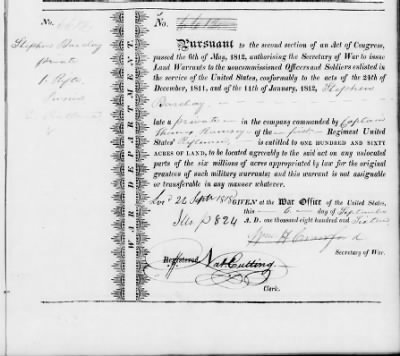 No. 6612
Stephen Barclay
private
1 Rifle
No. 6612
Pursuant to the second section of an Act of Congress,
passed the 6th of May, 1812, authorising the Secretary of War to issue
Land Warrants to the noncommissioned Officers and Soldiers enlisted in
the service of the United States, conformably to the acts of the 24th of
December, 1811, and of the 11th of January, 1812, Stephen
Barclay
late a private in the company commanded by Captain
Thomas Ramsey of the first Regiment United
States Riflemen is entitled to ONE HUNDRED AND SIXTY
ACRES OF LAND, to be located agreeably to the said act on any unlocated
parts of the six millions of acres appropriated by law for the original
grantees of such military warrants; and this warrant is not assignable
or transferable in any manner whatever.
Loc'd 22 Septr 1818 GIVEN at the War Office of the United States,
this 6 day of September
Ills. p 824 A. D. one thousand eight hundred and Sixteen
Wm H Crawford
Secretary of War.
Registered Nat Cutting
Clerk.
WAR DEPARTMENT